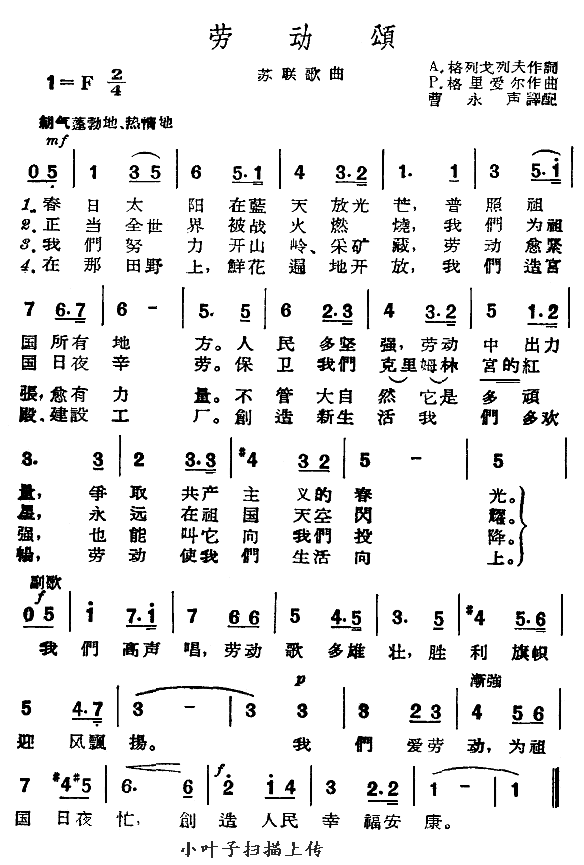 劳动頌
苏联歌曲
A.格列戈列夫作詞
1=F 2/4
P.格里爱尔作曲
曹永声譯配
朝气蓬勃地、热情地
mf
0 5 | 1 3 5 | 6 5·1 | 4 3·2 | 1· 1 | 3 5·i |
1.春日太阳在藍天放光芒,普照祖
2.正当全世界被战火燃燒,我們为祖
3.我們努力开山岭、采矿藏,劳动愈緊
4.在那田野上,鮮花遍地开放,我們造宮
7 6·7 | 6 - | 5· 5 | 6 2·3 | 4 3·2 | 5 1·2 |
国所有地方。人民多坚强,劳动中出力
国日夜辛劳。保卫我們克里姆林宮的紅
張,愈有力量。不管大自然它是多頑
殿、建設工厂。創造新生活我們多欢
3· 3 | 2 3·3 | #4 3 2 | 5 - | 5
量,爭取共产主义的春光。
星,永远在祖国天空閃耀。
强,也能叫它向我們投降。
暢,劳动使我們生活向上。
副歌
f
0 5 | i 7·i | 7 6 6 | 5 4·5 | 3· 5 | #4 5·6 |
我們高声唱,劳动歌多雄壮,胜利旗帜
p 漸強
5 4·7 | 3 - | 3 3 | 3 2·3 | 4 5·6 |
迎风飄揚。我們爱劳动,为祖
f
7 #4 #5 | 6· 6 | 2 i 4 | 3 2·2 | 1 - | 1 ‖
国日夜忙,創造人民幸福安康。
小叶子扫描上传